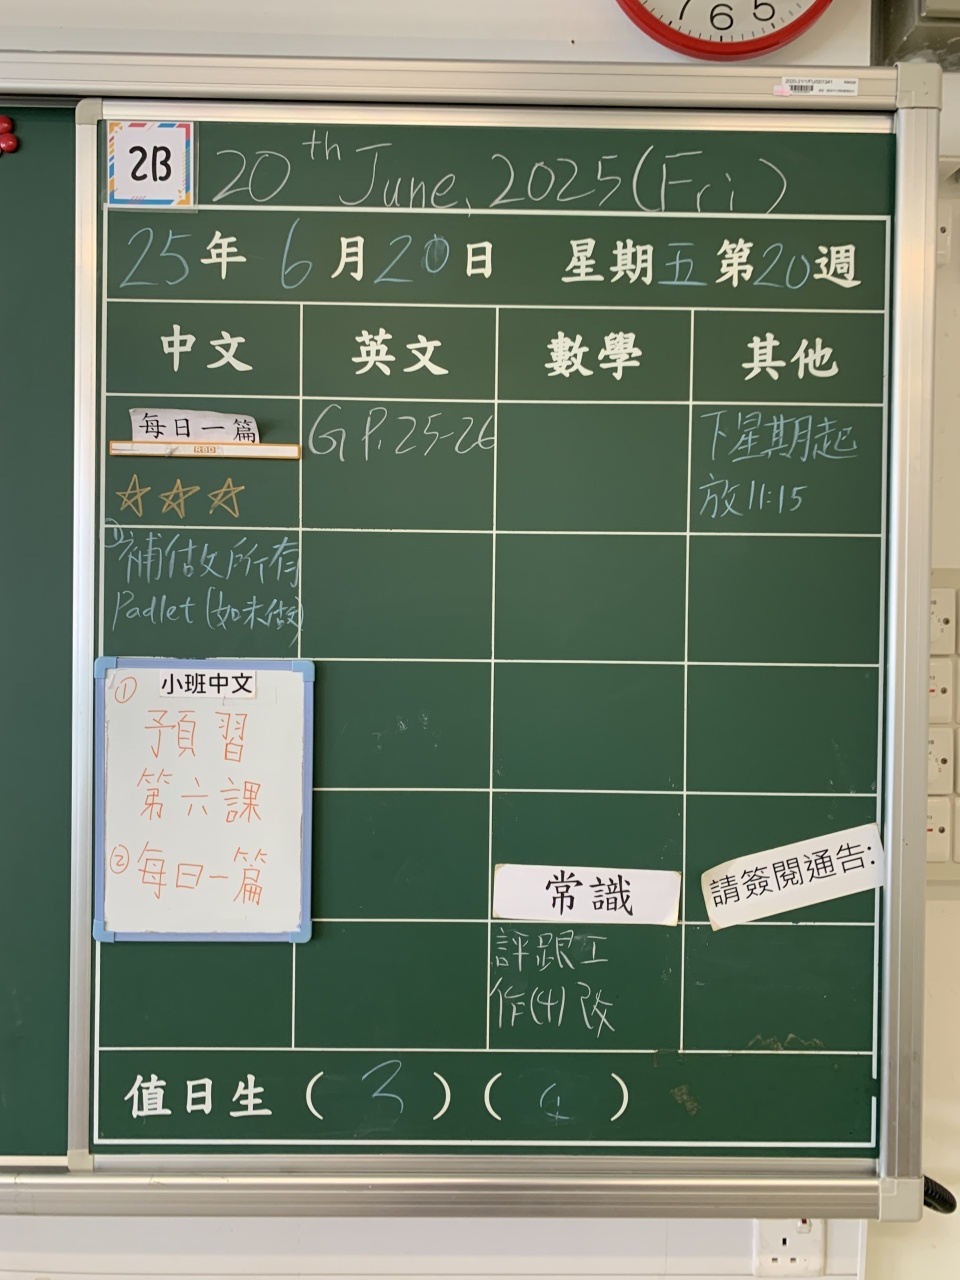 7 6 5
2B
20th June, 2025 (Fri)
25年 6月20日 星期五第20週
中文 英文 數學 其他
每日一篇
☆☆☆
G P. 25-26
下星期起
放11:15
① 補做所有
Padlet (如未做)
小班中文
① 預習
第六課
② 每日一篇
常識
評跟工
作(4) 改
請簽閱通告:
值日生 ( 3 ) ( 4 )